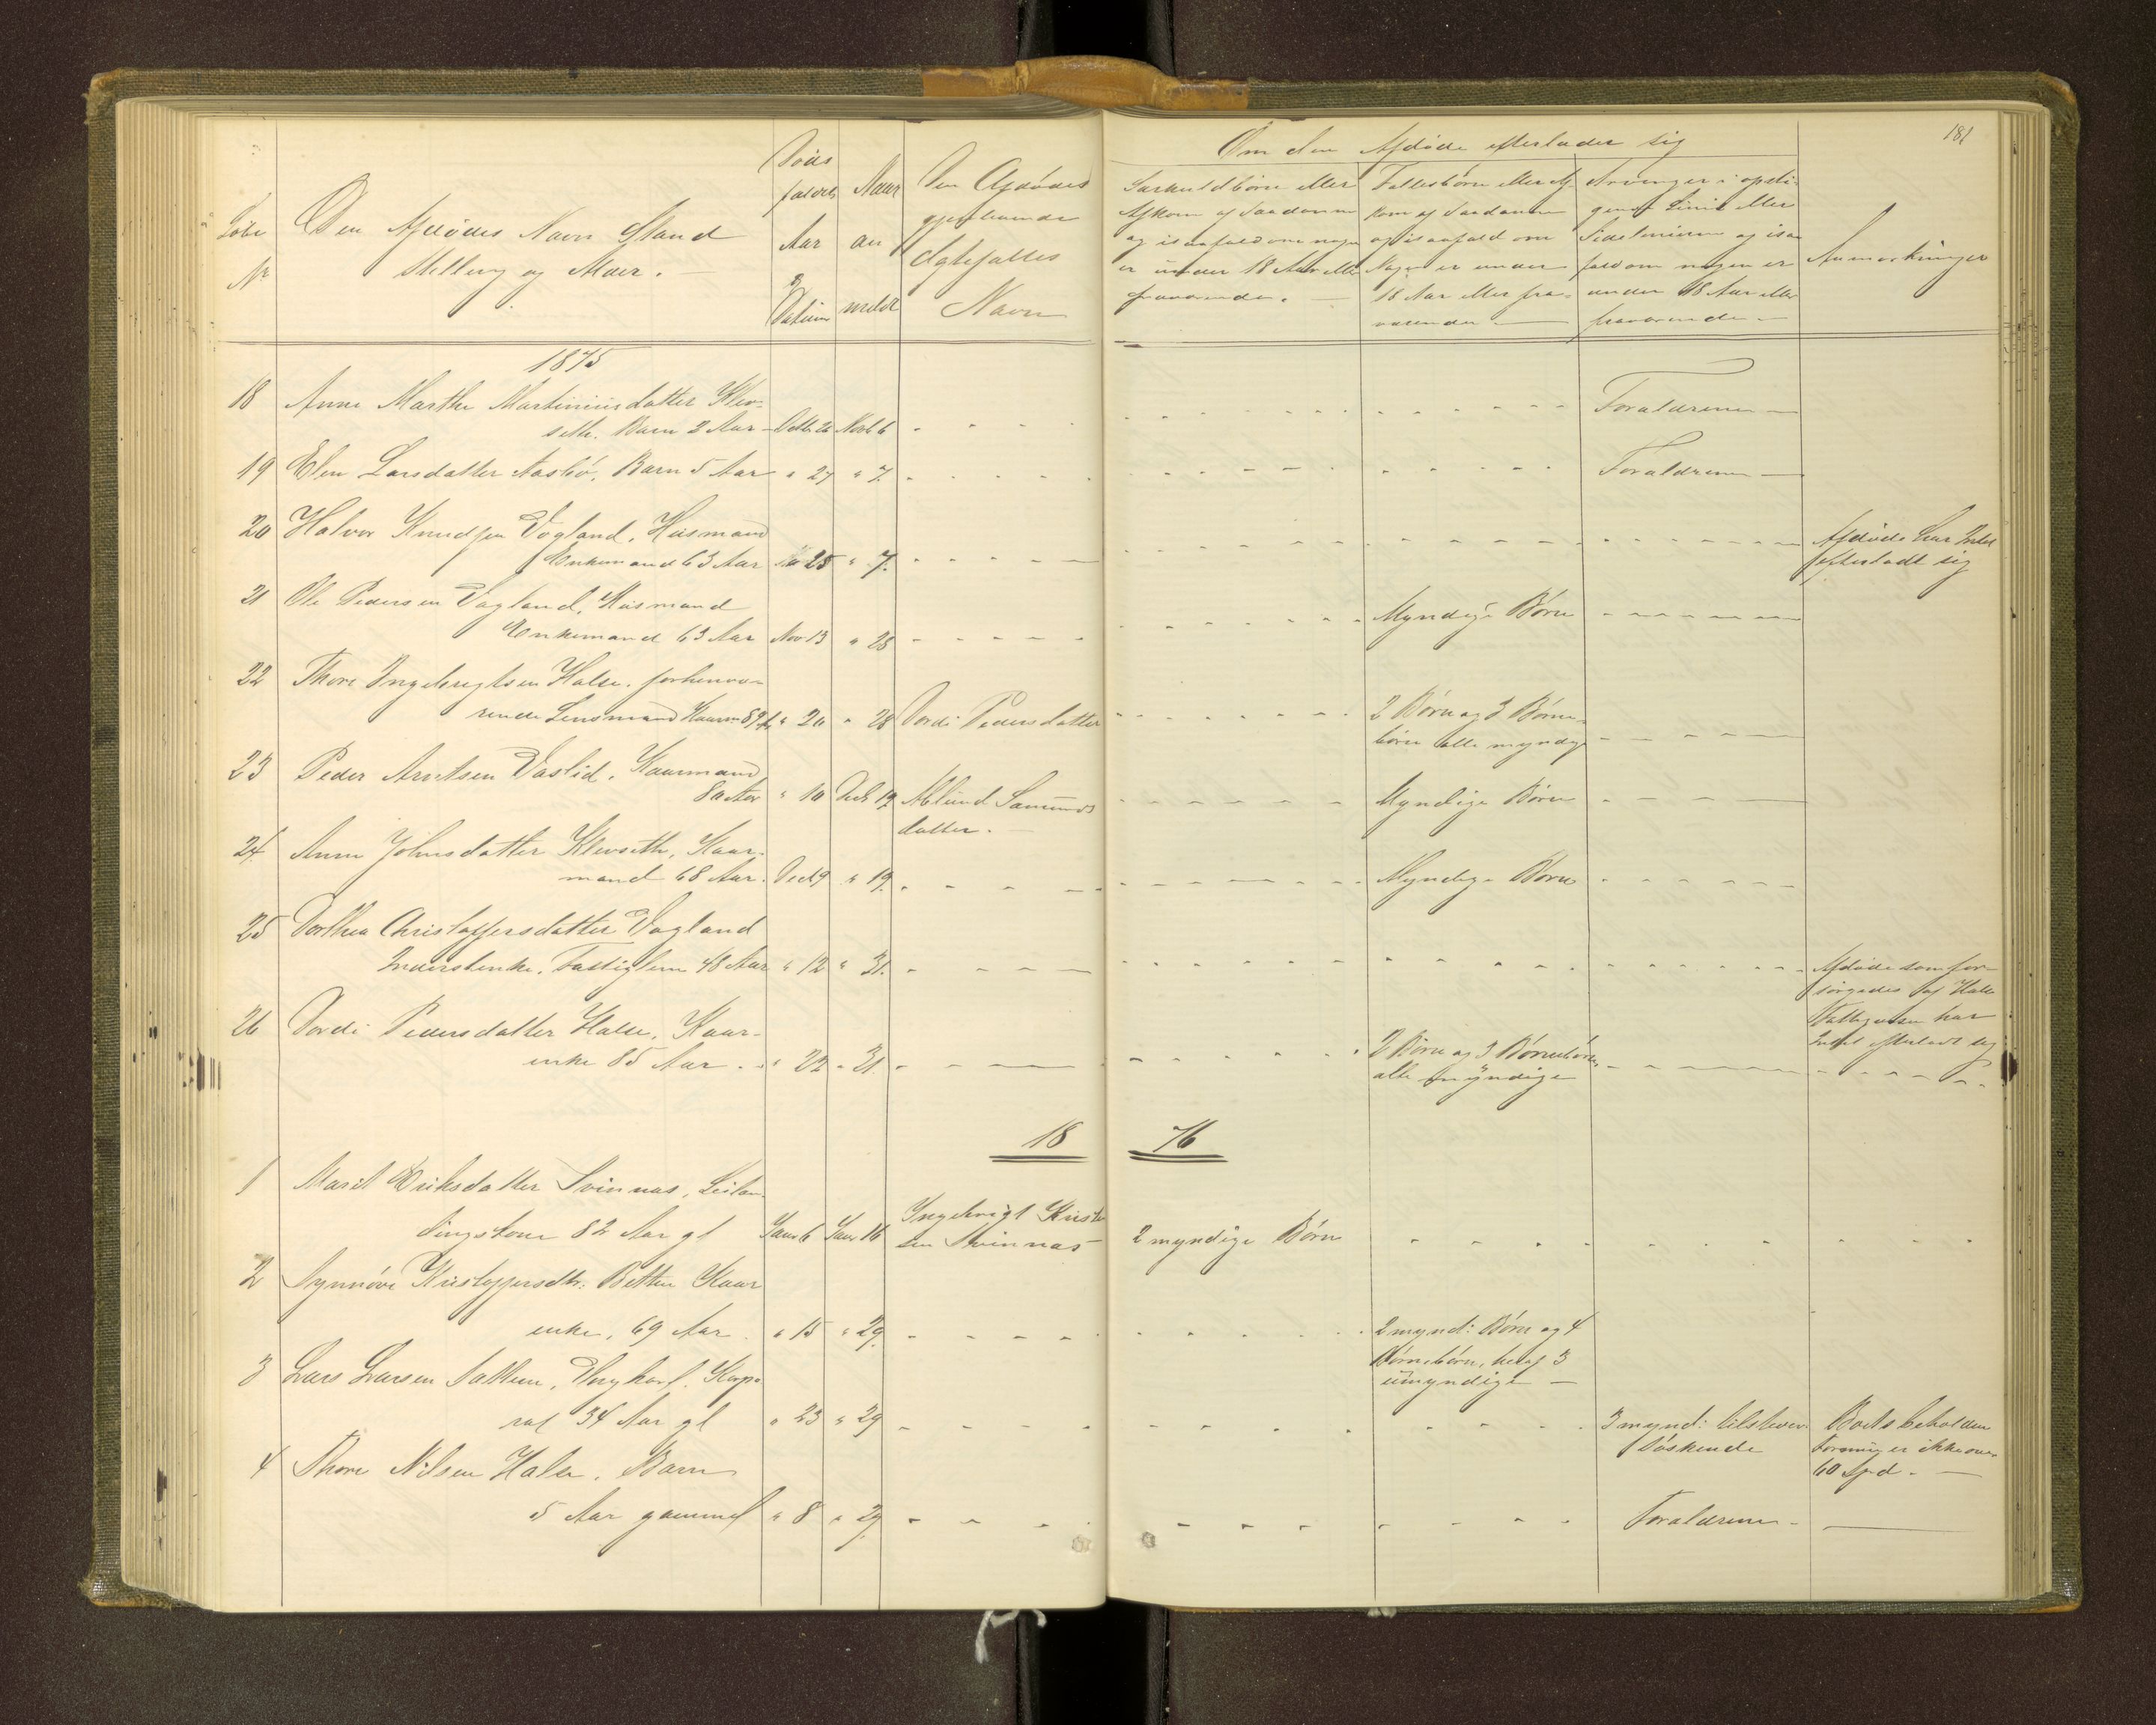 181
Om den Afdøde efterlader sig
Løbe
No
Den Afdødes Navn Stand
Stilling og Alder.
Døds
faldets
Aar
og
Datum
Naar
an
meldt
Den Afdødes
gjenlevende
Ægtefælles
Navn
Særkuldbørn eller
Afkom af Saadanne
og isaafald om nogen
er under 18 Aar eller
fraværende.
Fællesbørn eller Af-
kom af Saadanne
og isaafald om
Nogen er under
18 Aar eller fra-
værende
Arvinger i opsti-
gende Linie eller
Sidelinierne og isaa
fald om nogen er
under 18 Aar eller
fraværende
Anmærkninger
1875
18 Anne Marthe Martiniusdatter Klev-
seth. Barn 2 Aar - Octb. 26 Novb 6 Forældrene
19 Elen Larsdatter Aasbø, Barn 5 Aar " 27 " 7. Forældrene
20 Halvor Knudsen Vagland, Husmand
Enkemand 63 Aar 25 " 7. Afdøde har Intet
efterladt sig
21 Ole Pedersen Vagland, Husmand
Enkemand 63 Aar Nov 13 " 28 Myndige Børn
22 Thore Ingebrigtsen Halse, forhenvæ-
rende Lensmand Kaarm 89 A. " 20 " 28 Dordi Pedersdatter 2 Børn og 3 Børne-
børn alle myndige
23 Peder Arntsen Vaslid, Kaarmand
80 Aar " 10 Decb 19 Ablund Samunds
datter.
Myndige Børn
24 Anne Johnsdatter Klevseth, Kaar-
mand 68 Aar. Decb 9 " 19. Myndige Børn
25 Dorthea Christoffersdatter Vagland
Inderstenke, Fattiglem 48 Aar " 12 " 31. Afdøde som for-
sørgedes af Halse
Fattigvæsen har
Intet efterladt sig
26 Dordi Pedersdatter Halse, Kaar-
enke 85 Aar. " 22 " 31. 2 Børn og 3 Børnebørn
alle myndige
18 76
1 Marit Eriksdatter Svinnas, Leilæn-
dingskone 82 Aar gl Janr 6 Janr 16 Ingebrigt Krist-
sen Svinnas 2 myndige Børn
2 Synnøve Kristoffersdtr: Betten Kaar
enke, 69 Aar. " 15 " 29. 2 mynd: Børn og 4
Børnebørn, heraf 3
umyndige
3 Lars Larsen Sæther, Ungkarl, Korpo-
ral 34 Aar gl " 23 " 29 3 mynd: Helsøskende
Boets beholdne
Formue er ikke over
60 Spd.
4 Thore Nilsen Halse, Barn
5 Aar gammel " 8 " 29. Forældrene